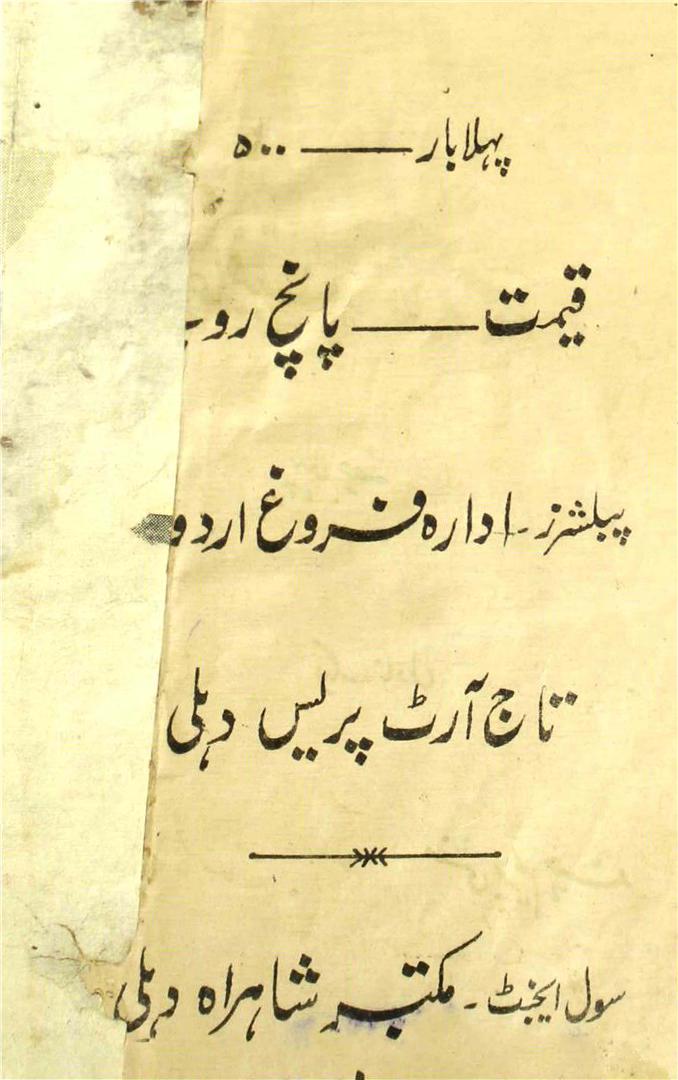 پہلا بار ـــــ ۵۰۰
قیمت ـــــ پانچ
پبلشرز۔ ادارہ فروغ اردو
تاج آرٹ پریس دہلی
سول ایجنٹ۔ مکتبہ شاہراہ دہلی